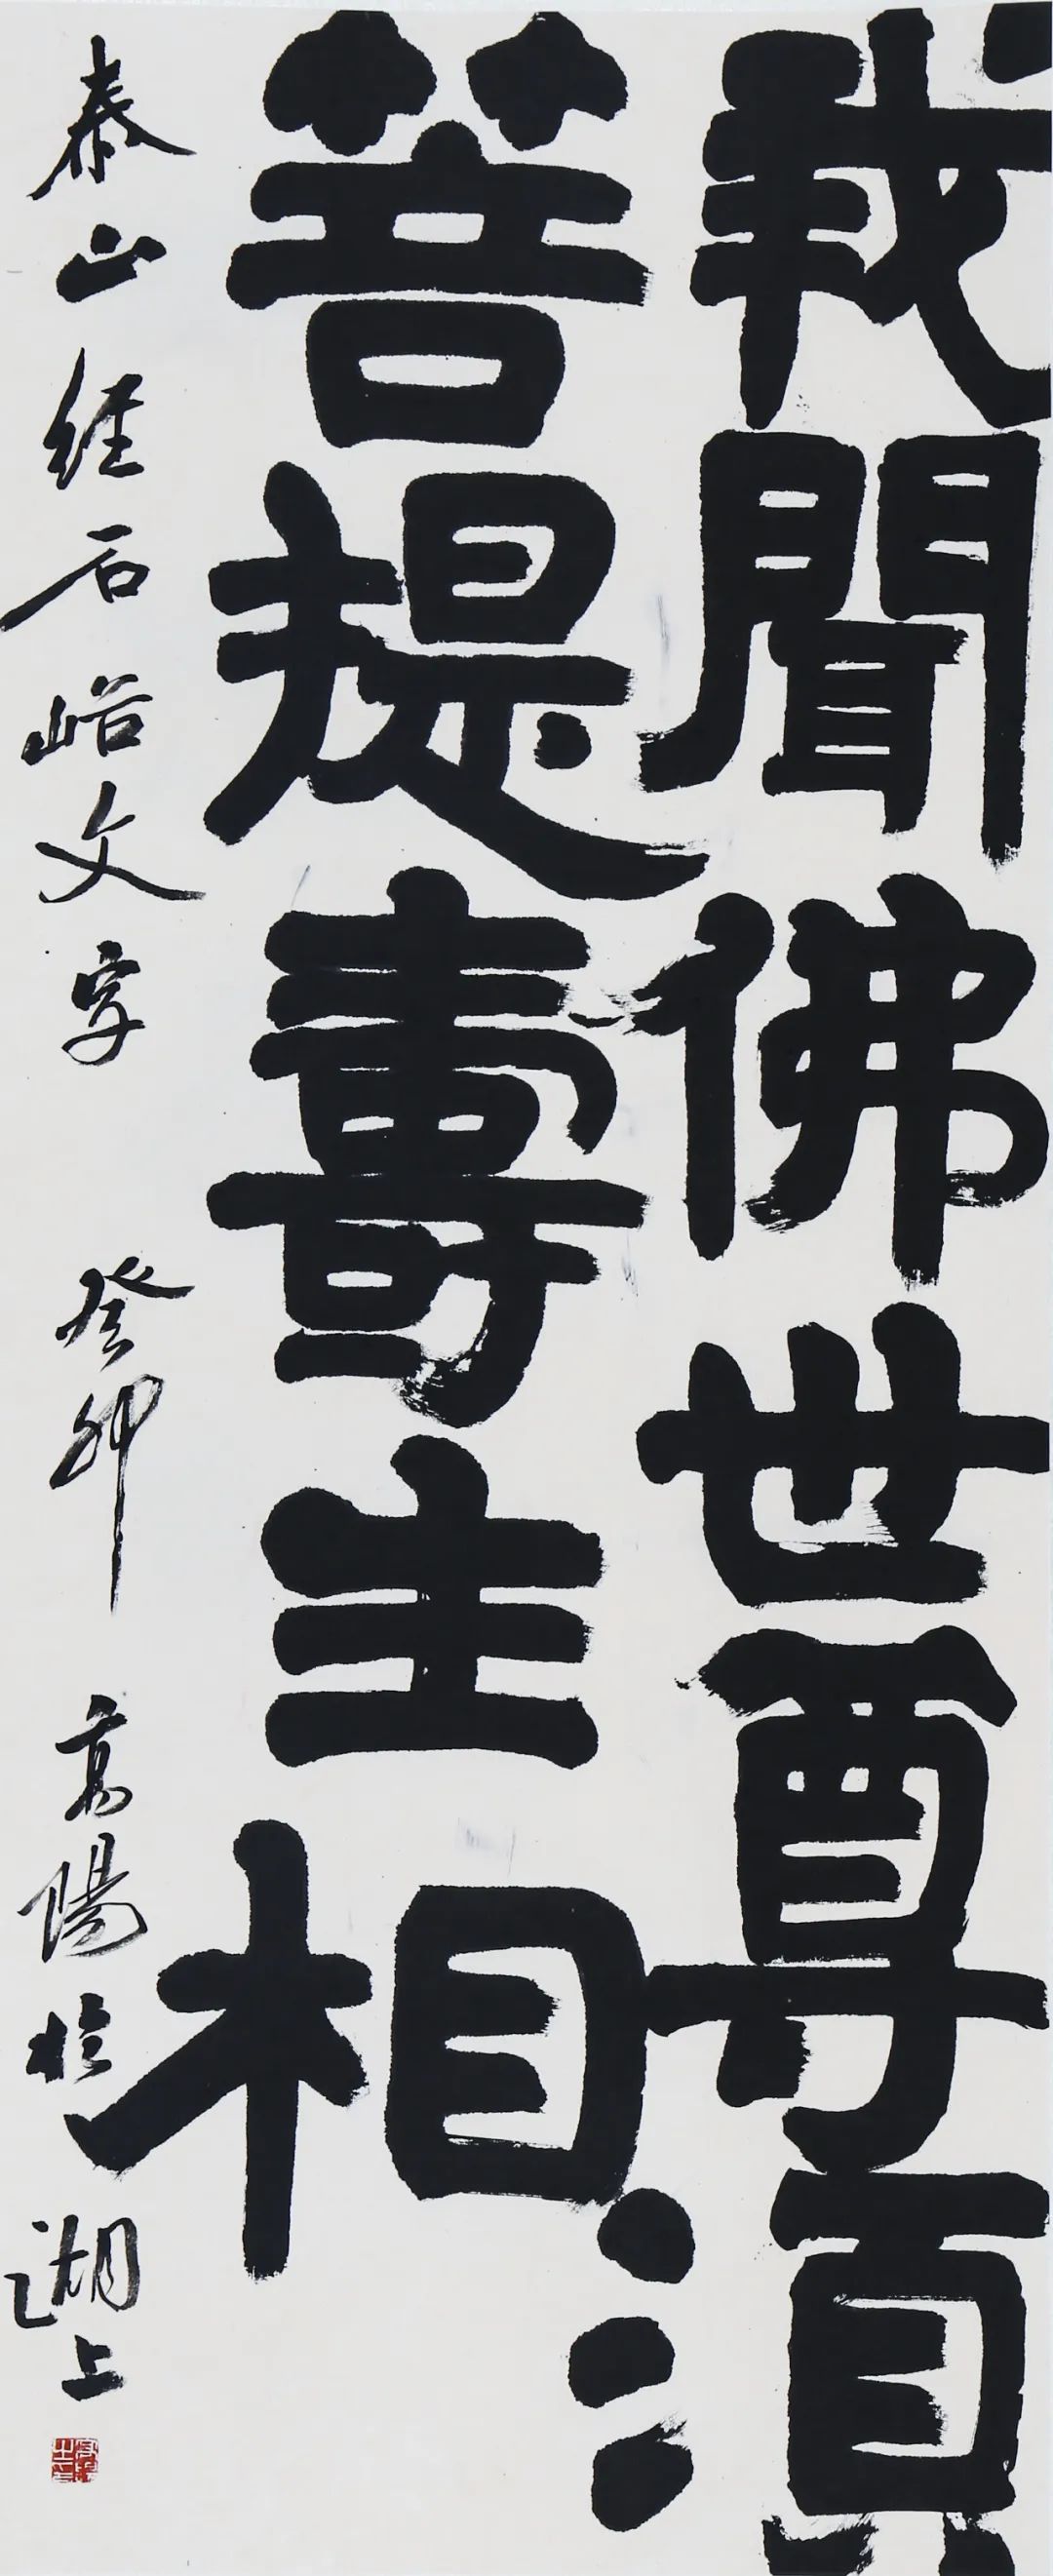 我聞佛世尊湏
菩提壽生相
泰山経石峪文字 癸卯 高陽於湖上